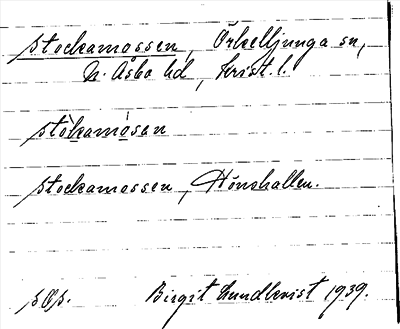 Stockamossen, Örkelljunga sn,
N. Åsbo hd, Krist. l.
stòkamósan
Stockamossen, Hönshallen.
Birgit Lundkvist 1939.